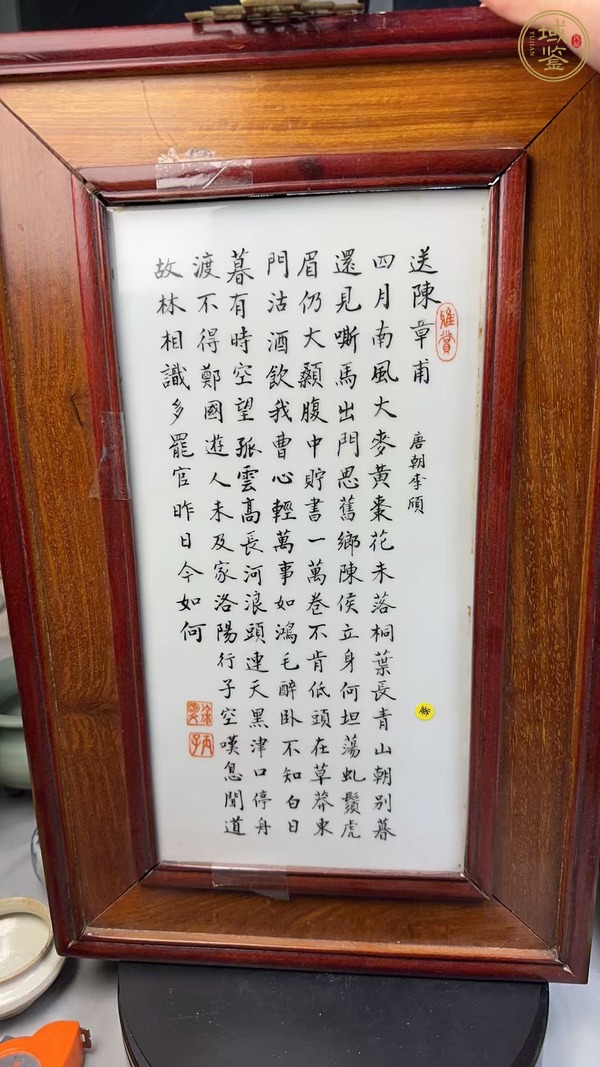 送陳章甫
雅賞
唐朝李頎
四月南風大麥黃棗花未落桐葉長青山朝別暮
還見嘶馬出門思舊鄉陳侯立身何坦蕩虬鬚虎
眉仍大顙腹中貯書一萬卷不肯低頭在草莽東
門沽酒飲我曹心輕萬事如鴻毛醉卧不知白日
暮有時空望孤雲高長河浪頭連天黑津口停舟
渡不得鄭國遊人未及家洛陽行子空嘆息聞道
故林相識多罷官昨日今如何
丙子
域鉴
YUJIAN